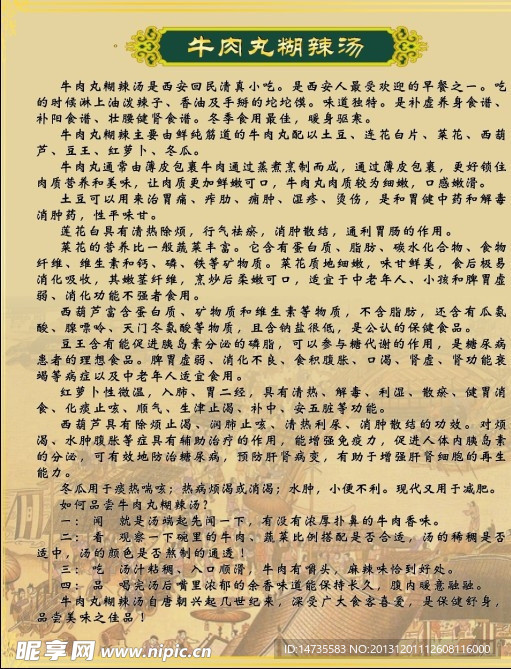 牛肉丸糊辣汤
牛肉丸糊辣汤是西安回民清真小吃。是西安人最受欢迎的早餐之一。吃
的时候淋上油泼辣子、香油及手掰的坨坨馍。味道独特。是补虚养身食谱、
补阳食谱、壮腰健肾食谱。冬季食用最佳，暖身驱寒。
牛肉丸糊辣主要由鲜纯筋道的牛肉丸配以土豆、连花白片、菜花、西葫
芦、豆王、红萝卜、冬瓜。
牛肉丸通常由薄皮包裹牛肉通过蒸煮烹制而成，通过薄皮包裹，更好锁住
肉质营养和美味，让肉质更加鲜嫩可口，牛肉丸肉质较为细嫩，口感嫩滑。
土豆可以用来治胃痛、痄肋、痈肿、湿疹、烫伤，是和胃健中药和解毒
消肿药，性平味甘。
莲花白具有清热除烦，行气祛瘀，消肿散结，通利胃肠的作用。
菜花的营养比一般蔬菜丰富。它含有蛋白质、脂肪、碳水化合物、食物
纤维、维生素和钙、磷、铁等矿物质。菜花质地细嫩，味甘鲜美，食后极易
消化吸收，其嫩茎纤维，烹炒后柔嫩可口，适宜于中老年人、小孩和脾胃虚
弱、消化功能不强者食用。
西葫芦富含蛋白质、矿物质和维生素等物质，不含脂肪，还含有瓜氨
酸、腺嘌呤、天门冬氨酸等物质，且含钠盐很低，是公认的保健食品。
豆王含有能促进胰岛素分泌的磷脂，可以参与糖代谢的作用，是糖尿病
患者的理想食品。脾胃虚弱、消化不良、食积腹胀、口渴、肾虚、肾功能衰
竭等病症以及中老年人适宜食用。
红萝卜性微温，入肺、胃二经，具有清热、解毒、利湿、散瘀、健胃消
食、化痰止咳、顺气、生津止渴、补中、安五脏等功能。
西葫芦具有除烦止渴、润肺止咳、清热利尿、消肿散结的功效。对烦
渴、水肿腹胀等症具有辅助治疗的作用，能增强免疫力，促进人体内胰岛素
的分泌，可有效地防治糖尿病，预防肝肾病变，有助于增强肝肾细胞的再生
能力。
冬瓜用于痰热喘咳；热病烦渴或消渴；水肿，小便不利。现代又用于减肥。
如何品尝牛肉丸糊辣汤？
一：闻　就是汤端起先闻一下，有没有浓厚扑鼻的牛肉香味。
二：看　观察一下碗里的牛肉、蔬菜比例搭配是否合适，汤的稀稠是否
适中，汤的颜色是否熬制的通透！
三：吃　汤汁粘稠、入口顺滑，牛肉有嚼头，麻辣味恰到好处。
四：品　喝完汤后嘴里浓郁的余香味道能保持长久，腹内暖意融融。
牛肉丸糊辣汤自唐朝兴起几世纪来，深受广大食客喜爱，是保健舒身，
品尝美味之佳品！
昵享网 www.nipic.cn
ID:14735583 NO:20131201112608116000